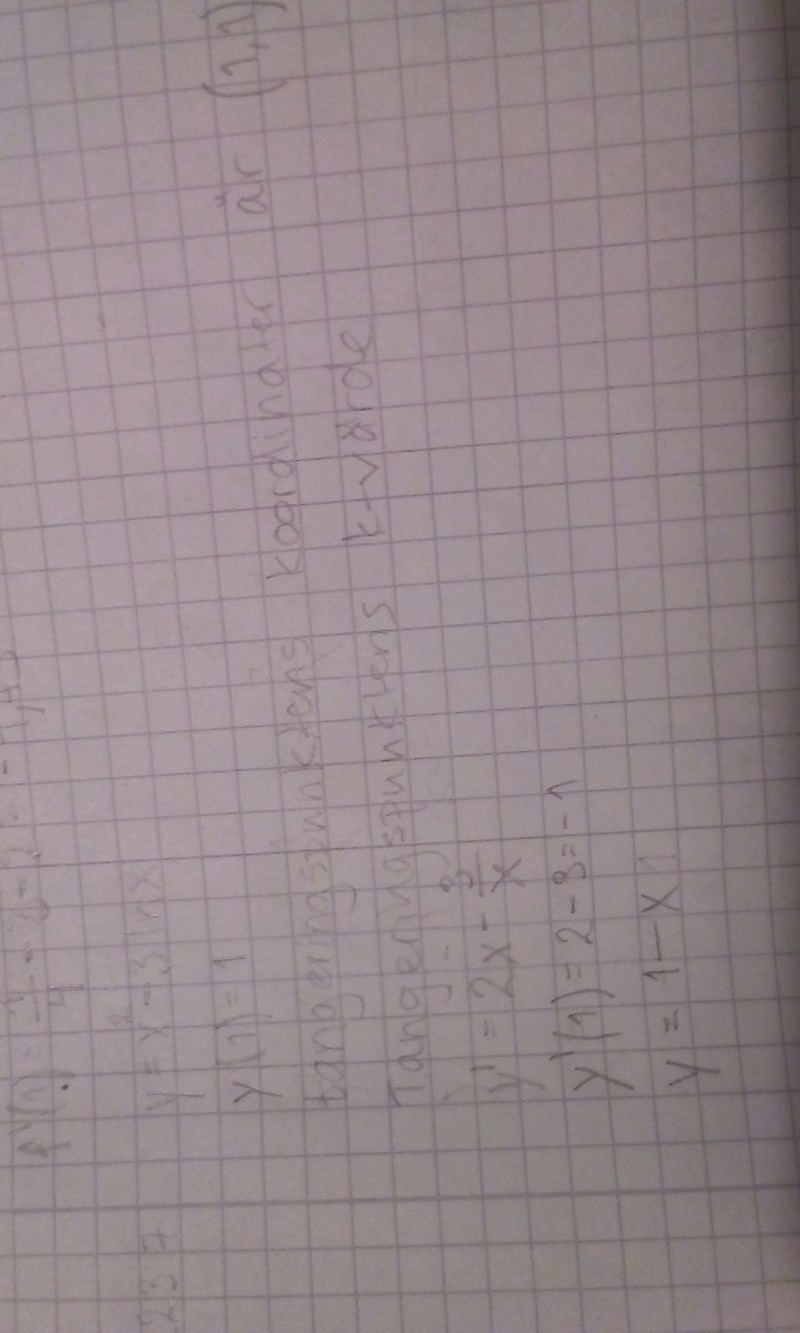 2337 y = x² - 3 ln x
y(1) = 1
tangeringspunktens koordinater är (1,1)
Tangeringspunktens k-värde
y' = 2x - 3/x
y'(1) = 2 - 3 = -1
y = 1 - x